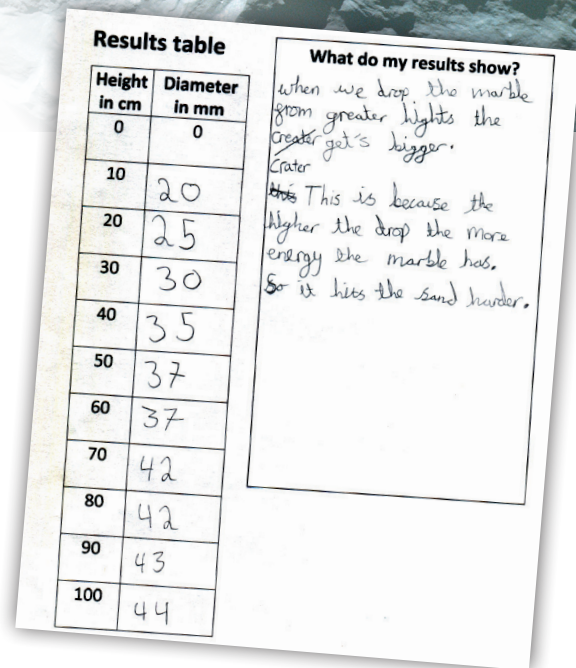 Results table
Height in cm Diameter in mm
0 0
10 20
20 25
30 30
40 35
50 37
60 37
70 42
80 42
90 43
100 44
What do my results show?
when we drop the marble
from greater hights the
Creater get's bigger.
Crater
this This is because the
higher the drop the more
energy the marble has.
So it hits the sand harder.